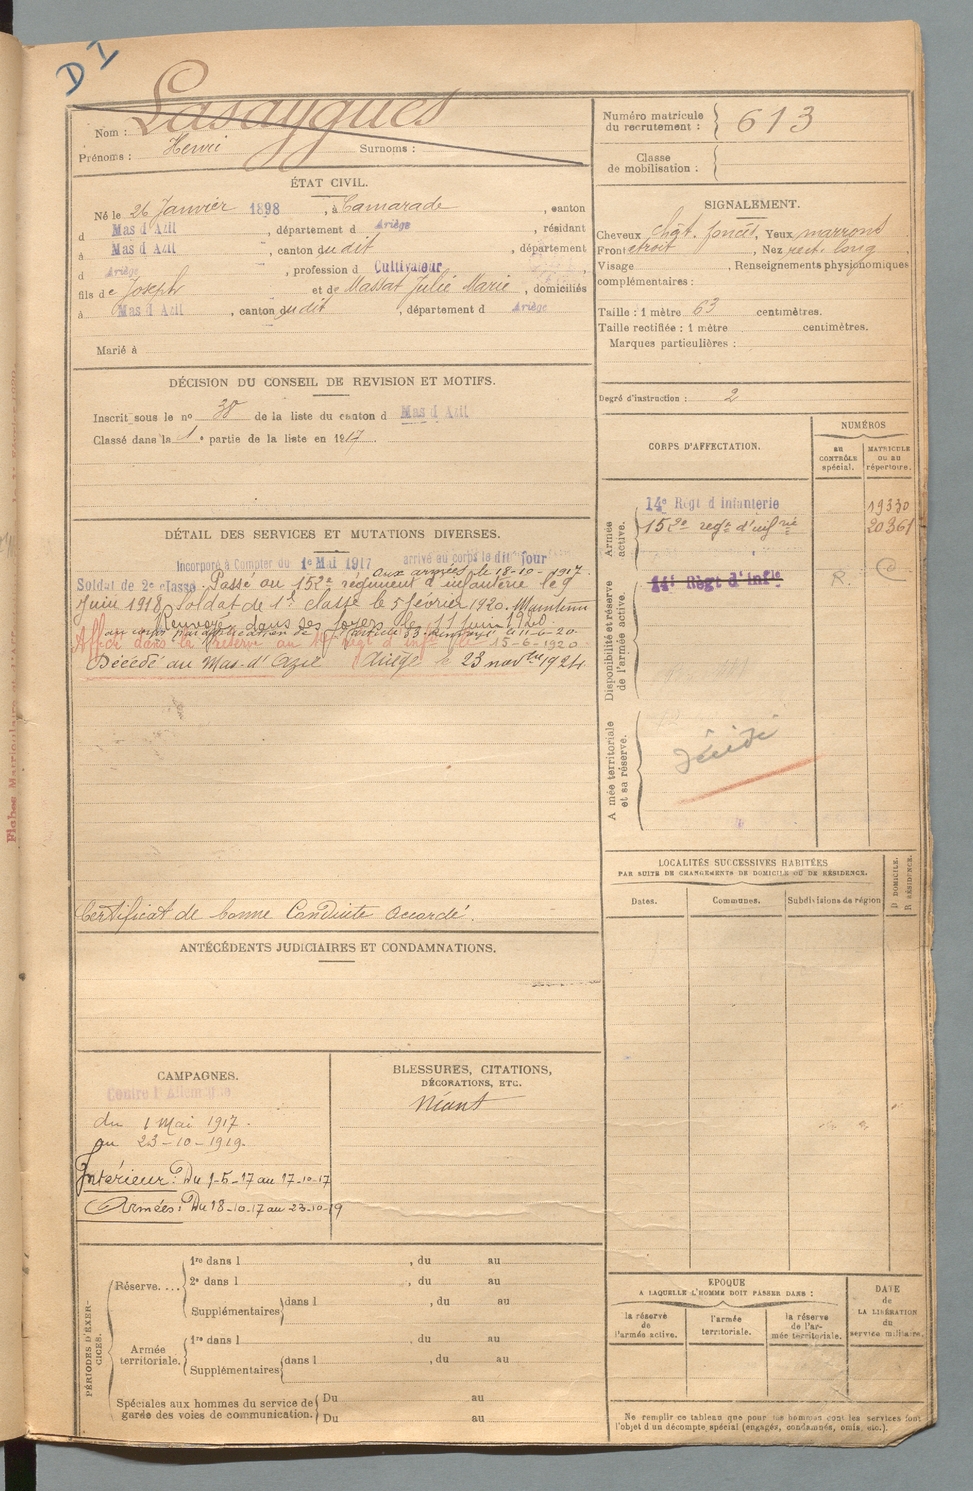 D I
Nom : Lasaygues
Prénoms : Henri Surnoms :
Numéro matricule du recrutement : 613
Classe de mobilisation :
ÉTAT CIVIL.
Né le 26 Janvier 1898, à Camarade, canton
d Mas d Azil, département d Ariège, résidant
à Mas d Azil, canton du dit, département
d Ariège, profession d Cultivateur
fils de Joseph et de Massat Julie Marie, domiciliés
à Mas d Azil, canton du dit, département d Ariège
Marié à
SIGNALEMENT.
Cheveux chât. foncés, Yeux marrons
Front étroit, Nez rect. long
Visage, Renseignements physionomiques
complémentaires :
Taille : 1 mètre 63 centimètres.
Taille rectifiée : 1 mètre centimètres.
Marques particulières :
Degré d'instruction : 2
DÉCISION DU CONSEIL DE REVISION ET MOTIFS.
Inscrit sous le nº 38 de la liste du canton d Mas d Azil
Classé dans la 1e partie de la liste en 1917.
CORPS D'AFFECTATION.
NUMÉROS
AU CONTRÔLE spécial.
MATRICULE OU AU répertoire.
Armée active.
14e Régt d Infanterie 19330
152e regt d'infrie 20361
Disponibilité et réserve de l'armée active.
14e Régt d'Infie R. C
Armée territoriale et sa réserve.
décédé
DÉTAIL DES SERVICES ET MUTATIONS DIVERSES.
Incorporé à Compter du 1e Mai 1917 arrivé au corps le dit jour
aux armées le 18-10-1917.
Soldat de 2e classe. Passé au 152e régiment d'infanterie le 9
Juin 1918. Soldat de 1e classe le 5 février 1920. Maintenu
au corps par application de l'article 33. Renvoyé le 11-6-20.
Renvoyé dans ses foyers le 11 juin 1920
Affecté dans la réserve au 14e Régt d'Infie le 15-6-1920
Décédé au Mas-d'Azil Ariège le 23 novbre 1924
Certificat de bonne Conduite Accordé.
ANTÉCÉDENTS JUDICIAIRES ET CONDAMNATIONS.
LOCALITÉS SUCCESSIVES HABITÉES
PAR SUITE DE CHANGEMENTS DE DOMICILE OU DE RÉSIDENCE.
Dates. Communes. Subdivisions de région
D DOMICILE.
R RÉSIDENCE.
CAMPAGNES.
Contre l'Allemagne
du 1 Mai 1917.
au 23-10-1919.
Intérieur : Du 1-5-17 au 17-10-17
Armées : Du 18-10-17 au 23-10-19
BLESSURES, CITATIONS,
DÉCORATIONS, ETC.
Néant
PÉRIODES D'EXERCICES.
Réserve....
1re dans l, du au
2e dans l, du au
Supplémentaires dans l, du au
Armée territoriale.
1re dans l, du au
Supplémentaires dans l, du au
Spéciales aux hommes du service de garde des voies de communication.
Du au
Du au
EPOQUE
A LAQUELLE L'HOMME DOIT PASSER DANS :
la réserve de l'armée active.
l'armée territoriale.
la réserve de l'armée territoriale.
DATE de LA LIBÉRATION du service militaire.
Ne remplir ce tableau que pour les hommes dont les services font
l'objet d'un décompte spécial (engagés, condamnés, omis, etc.).